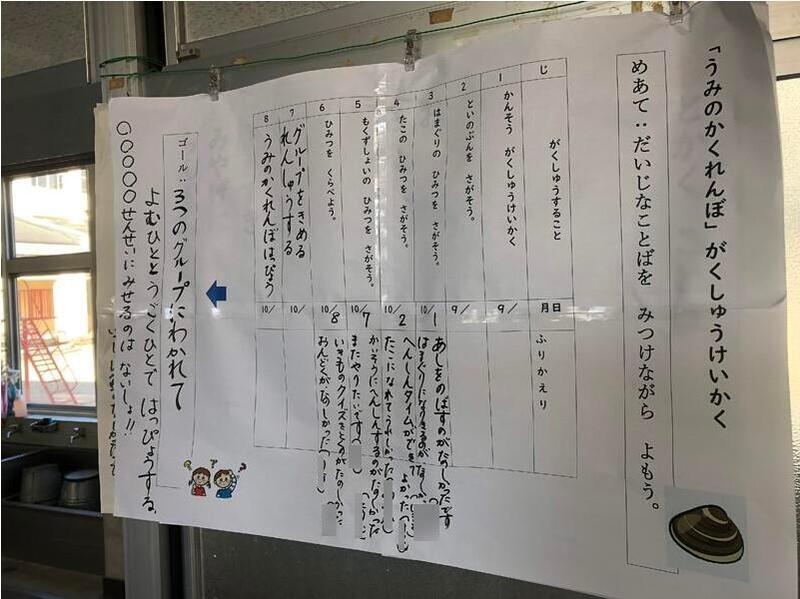 「うみのかくれんぼ」がくしゅうけいかく
めあて：だいじなことばを　みつけながら　よもう。
じ　がくしゅうすること　月日　ふりかえり
1　かんそう　がくしゅうけいかく　9/
2　といのぶんを　さがそう。　9/
3　はまぐりの　ひみつを　さがそう。　10/1　あしをのばすのがたのしかったです
はまぐりになりきるのがたのしかった
4　たこの　ひみつを　さがそう。　10/2　へんしんタイムができて　よかった
たこになれてうれしかった
5　もくずしょいの　ひみつを　さがそう。　10/7　かいそうにへんしんするのがたのしかった
またやりたいです
6　ひみつを　くらべよう。　10/8　いきものクイズをとくのがたのしかった
おんどくがたのしかった
7　グループをきめる　れんしゅうする　10/
8　うみのかくれんぼはっぴょう　10/
ゴール：3つのグループにわかれて
よむひとと　うごくひとで　はっぴょうする。
〇〇〇〇〇せんせいにみせるのは　ないしょ!!